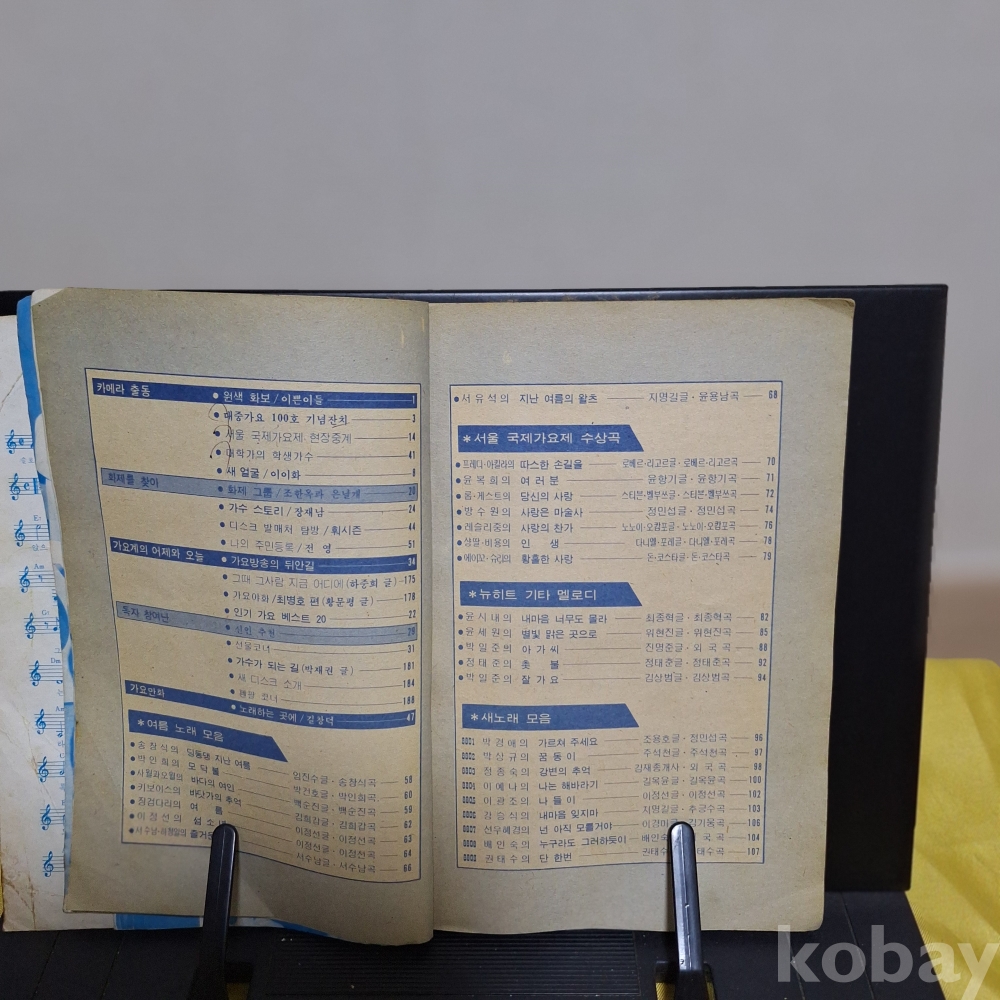 카메라 출동
● 원색 화보/이쁜이들 1
● 대중가요 100호 기념잔치 3
● 서울 국제가요제 현장중계 14
● 대학가의 학생가수 41
● 새 얼굴/이이화 8
화제를 찾아
● 화제 그룹/조한옥과 은날개 20
● 가수 스토리/장재남 24
● 디스크 발매처 탐방/휘시즌 44
● 나의 주민등록/전 영 51
가요계의 어제와 오늘
● 가요방송의 뒤안길 34
● 그때 그사람 지금 어디에(하중희 글) 175
● 가요야화/최병호 편(황문평 글) 178
● 인기 가요 베스트 20 22
독자 참여난
● 28
● 선물코너 31
● 가수가 되는 길(박재권 글) 181
● 새 디스크 소개 184
● 펜팔 코너 188
가요만화
● 노래하는 곳에/길창덕 47
*여름 노래 모음
● 송창식의 딩동댕 지난 여름 임진수글·송창식곡 58
● 박인희의 모닥불 박건호글·박인희곡 60
● 사월과오월의 바다의 여인 백순진글·백순진곡 59
● 키보이스의 바닷가의 추억 김희갑글·김희갑곡 62
● 징검다리의 여 름 이정선글·이정선곡 63
● 이정선의 섬소년 이정선글·이정선곡 64
서수남글·서수남곡 66
● 서유석의 지난 여름의 왈츠 지명길글·윤용남곡 68
*서울 국제가요제 수상곡
● 프레디·아길라의 따스한 손길을 로베르·리고르글·로베르·리고르곡 70
● 윤복희의 여러분 윤항기글·윤항기곡 71
● 톰·게스트의 당신의 사랑 스티븐·벨부쓰글·스티븐·벨부쓰곡 72
● 방수원의 사랑은 마술사 정민섭글·정민섭곡 74
● 레슬리중의 사랑의 찬가 노노이·오캄포글·노노이·오캄포곡 76
● 샹딸·비용의 인 생 다니엘·포레글·다니엘·포레곡 78
● 에이모·슈리의 황홀한 사랑 돈·코스타글·돈·코스타곡 79
*뉴히트 기타 멜로디
● 윤시내의 내마음 너무도 몰라 최종혁글·최종혁곡 82
● 윤세원의 별빛 맑은 곳으로 위현진글·위현진곡 85
● 박일준의 아가씨 진명준글·외국곡 88
● 정태춘의 촛 불 정태춘글·정태춘곡 92
● 박일준의 잘가요 김상범글·김상범곡 94
*새노래 모음
박경애의 가르쳐 주세요 조용호글·정민섭곡 96
박상규의 꿈동이 주석천글·주석천곡 97
정종숙의 강변의 추억 김재종개사·외국곡 98
이예나의 나는 해바라기 길옥윤글·길옥윤곡 100
이광조의 나들이 이정선글·이정선곡 102
강승식의 내마음 잊지마 지명길글·추긍수곡 103
선우혜경의 넌 아직 모를거야 이경미글·김기웅곡 106
배인숙의 누구라도 그러하듯이 배인숙 국곡 104
권태수의 단 한번 권태수 태수곡 107
kobay